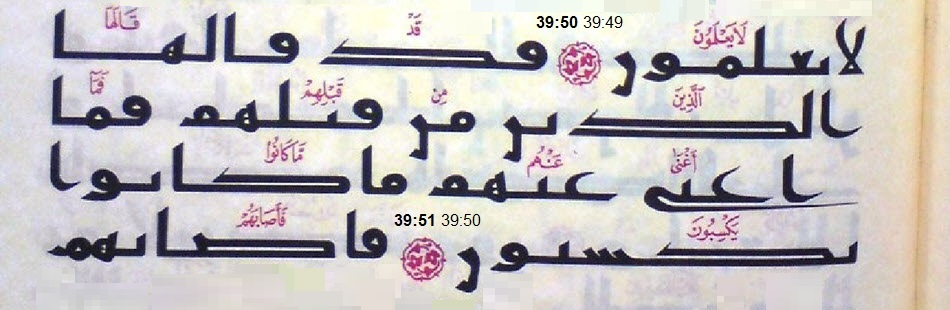 لَا يَعْلَمُونَ 39:50 39:49 قَدْ قَالَهَا
لا يعلمون قد قالها
الَّذِينَ مِن قَبْلِهِمْ فَمَا
الذين من قبلهم فما
أَغْنَىٰ عَنْهُم مَّا كَانُوا
اغنى عنهم ما كانوا
يَكْسِبُونَ 39:51 39:50 فَأَصَابَهُمْ
يكسبون فاصابهم